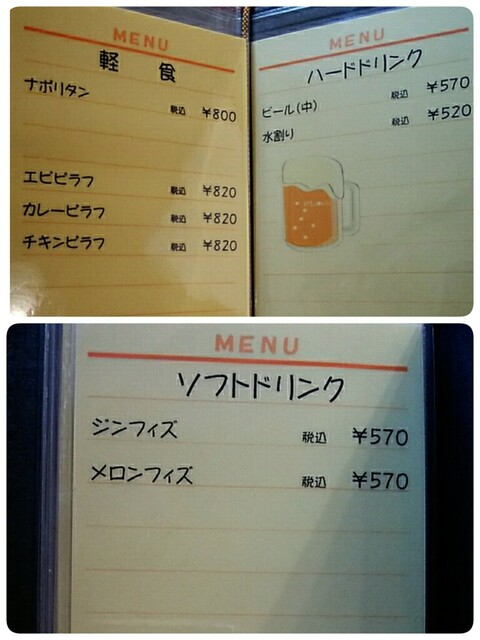 MENU
軽 食
ナポリタン
税込 ¥800
エビピラフ 税込 ¥820
カレーピラフ 税込 ¥820
チキンピラフ 税込 ¥820
MENU
ハードドリンク
ビール(中) 税込 ¥570
水割り 税込 ¥520
MENU
ソフトドリンク
ジンフィズ 税込 ¥570
メロンフィズ 税込 ¥570